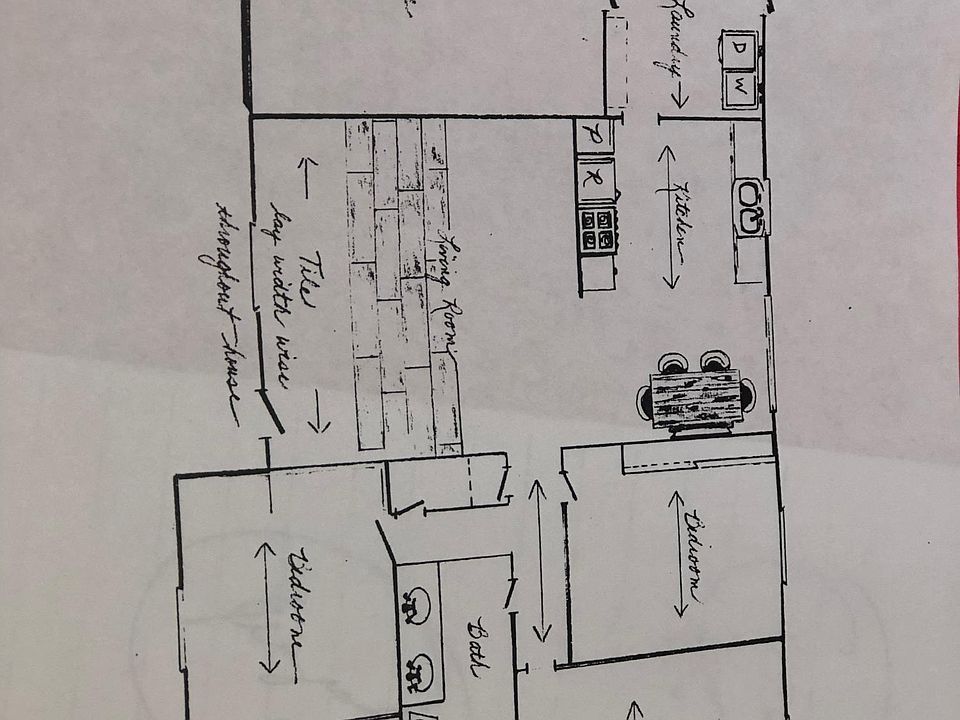 Laundry
D
W
P
R
Kitchen
Living Room
Tile
lay width wise
throughout house
Bedroom
Bedroom
Bath